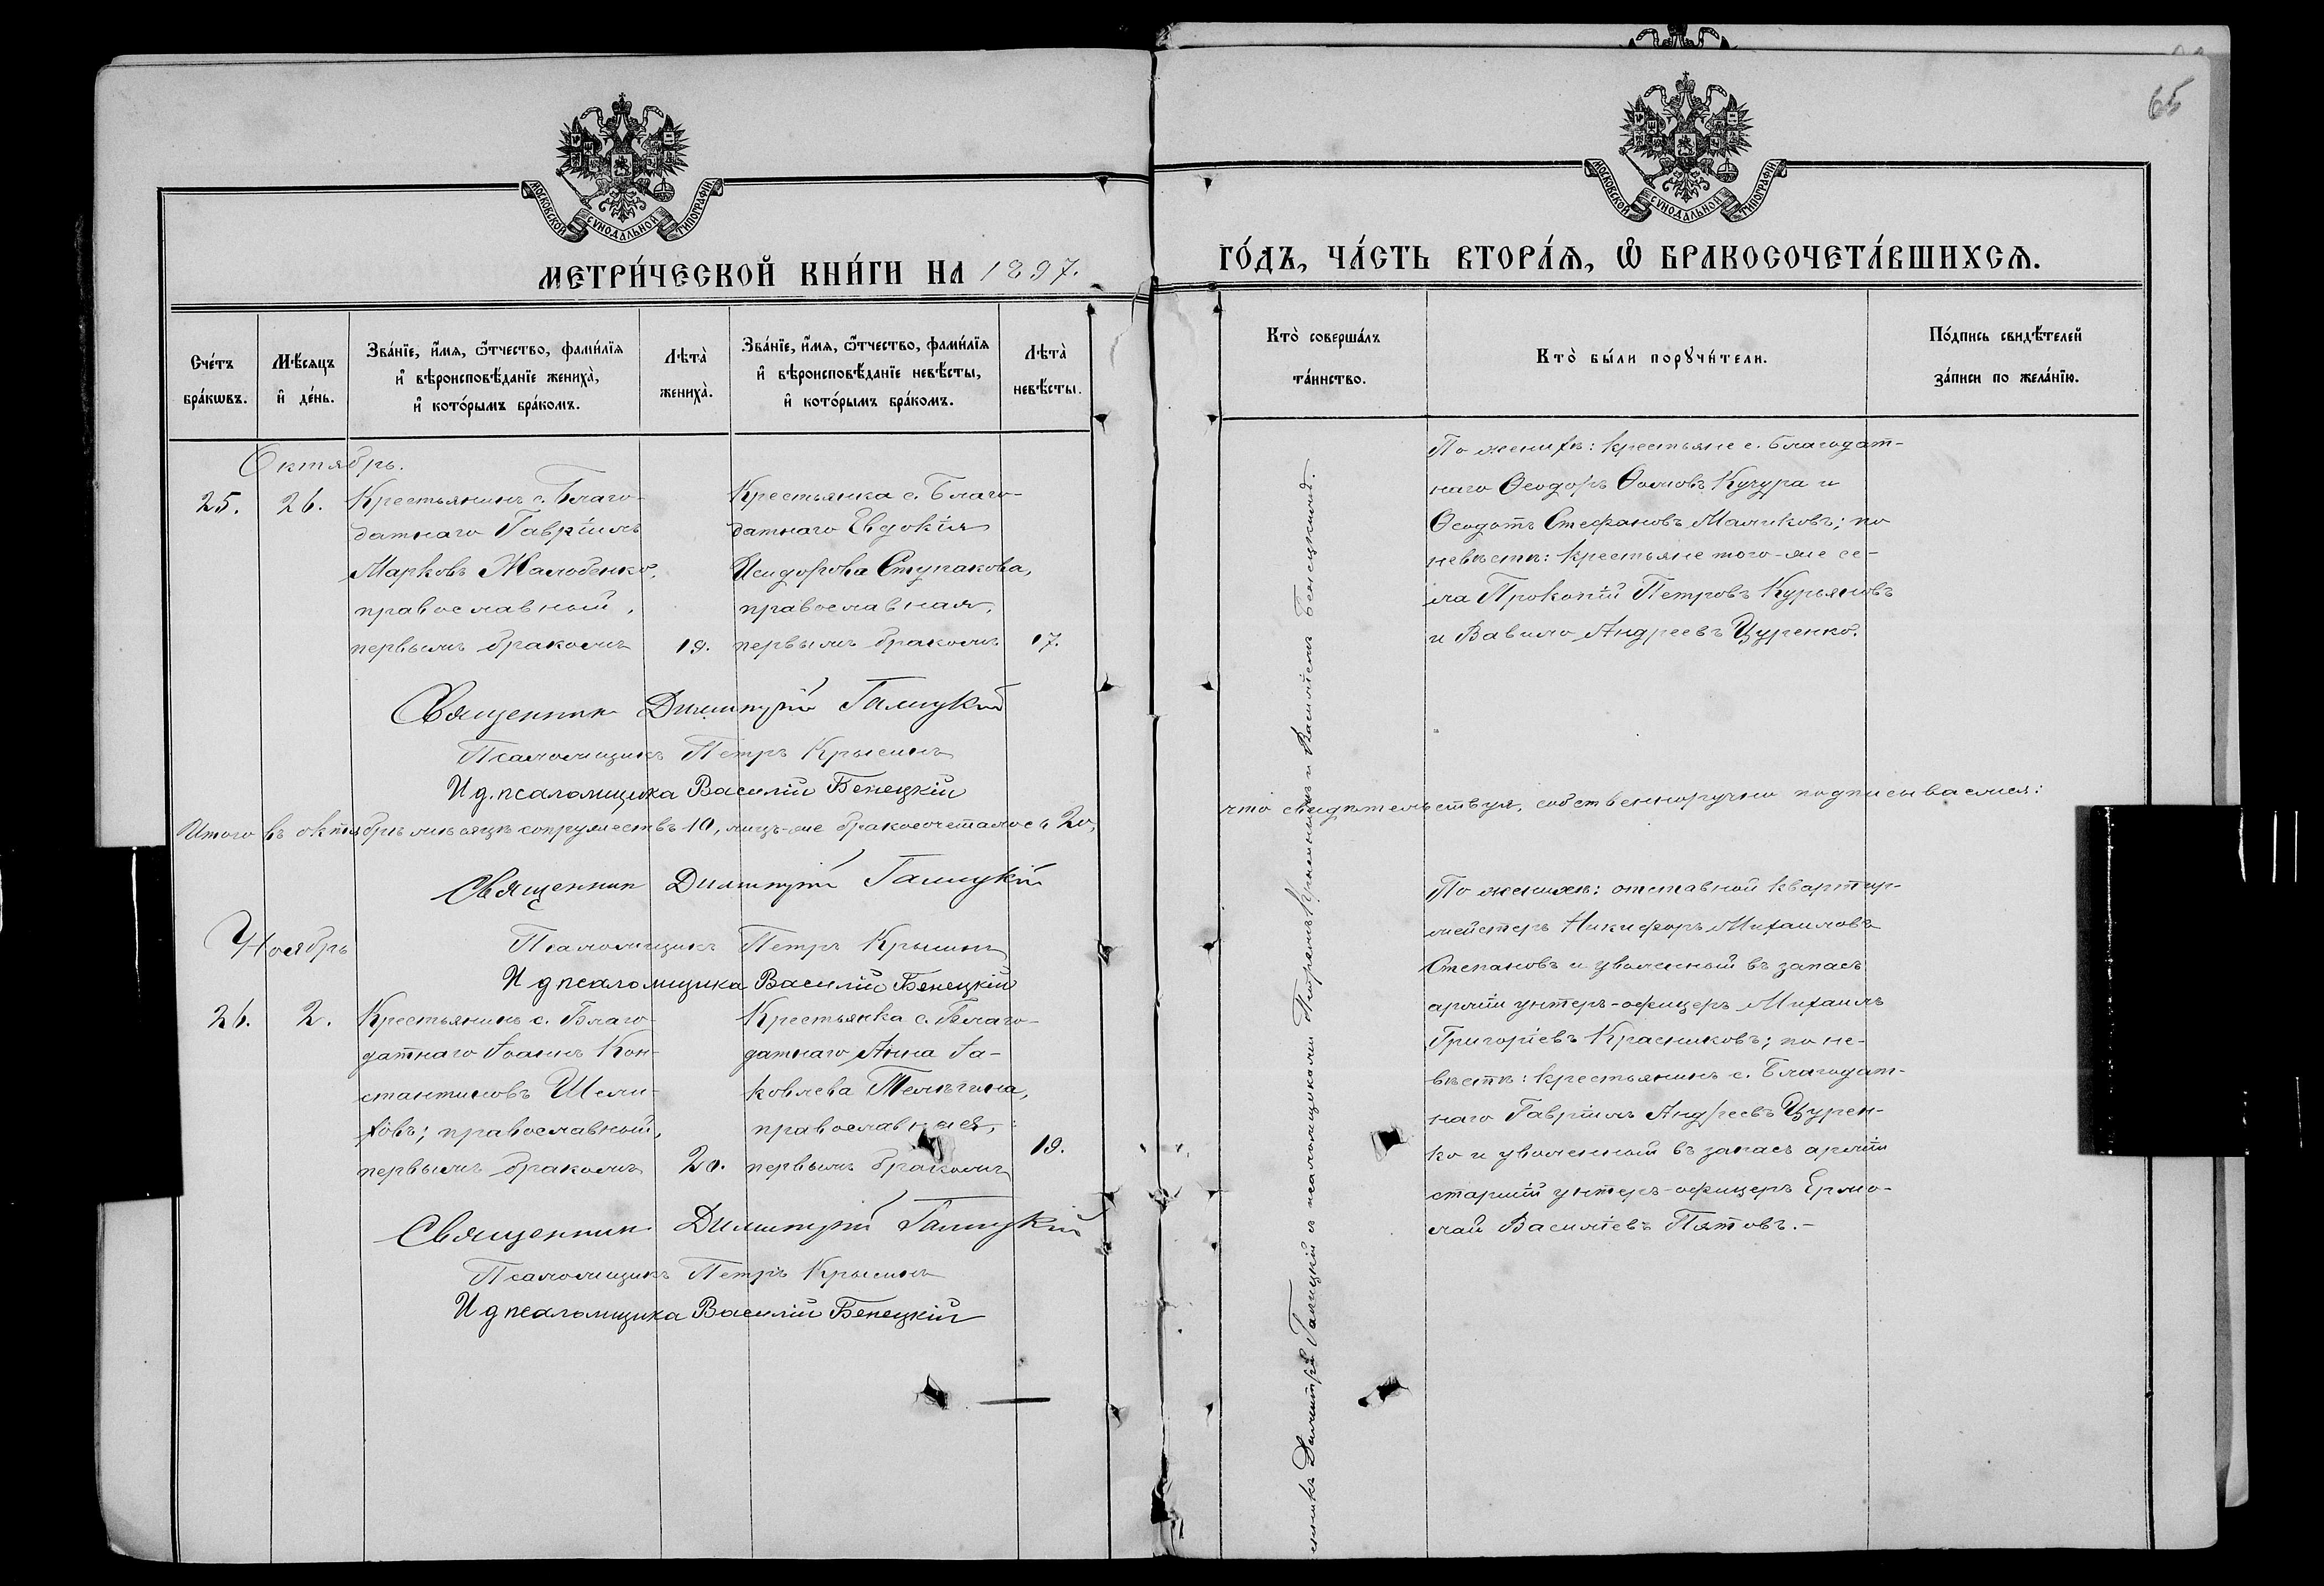 65
МОСКОВСКОЙ СѴНОДАЛЬНОЙ ТИПОГРАФІИ
МОСКОВСКОЙ СѴНОДАЛЬНОЙ ТИПОГРАФІИ
МЕТРИ́ЧЕСКОЙ КНИ́ГИ НА 1897.
ГО́ДЪ, ЧА́СТЬ ВТОРА́Ѧ, Ѽ БРАКОСОЧЕТА́ВШИХСѦ.
Сче́тъ бра́кѡвъ.
Мѣ́сяцъ и҆ де́нь.
Зва́нїе, и҆́мя, ѻ҆́тчество, фами́лїя
и҆ вѣроисповѣ́данїе жениха̀,
и҆ кото́рымъ бра́комъ.
Лѣта̀ жениха̀.
Зва́нїе, и҆́мя, ѻ҆́тчество, фами́лїя
и҆ вѣроисповѣ́данїе невѣ́сты,
и҆ кото́рымъ бра́комъ.
Лѣта̀ невѣ́сты.
Кто̀ соверша́лъ та́инство.
Кто̀ бы́ли порꙋчи́тели.
По́дпись свидѣ́телей за́писи по жела́нїю.
Октябрь.
25. 26.
Крестьянинъ с. Благо-
датнаго Гавріилъ
Марковъ Жалобенко,
православный,
первымъ бракомъ
19.
Крестьянка с. Благо-
датнаго Евдокія
Исидорова Ступакова,
православная,
первымъ бракомъ
17.
По женихѣ: крестьяне с. Благодат-
наго Ѳеодоръ Ѳомовъ Кучура и
Ѳеодотъ Стефановъ Маликовъ; по
невѣстѣ: крестьяне того-же се-
ла Прокопій Петровъ Курьяновъ
и Вавило Андреевъ Цуренко.
Священник Димитрій Галицкій
Псаломщикъ Петръ Крысинъ
И д. псаломщика Василій Бенецкій
Итого въ октябрѣ мѣсяцѣ супружествъ 10, лицъ-же бракосочеталось 20,
что свидѣтельствуя, собственноручно подписываемся:
Священник Димитрій Галицкій
Псаломщикъ Петръ Крысинъ
И д псаломщика Василій Бенецкій
Ноябрь
26. 2.
Крестьянинъ с. Благо-
датнаго Іоаннъ Кон-
стантиновъ Шели-
ховъ; православный,
первымъ бракомъ
20.
Крестьянка с. Благо-
датнаго Анна Іа-
ковлева Телѣгина,
православная,
первымъ бракомъ
19.
По женихѣ: отставной квартир-
мейстеръ Никифоръ Михаиловъ
Степановъ и уволенный въ запасъ
арміи унтеръ-офицеръ Михаилъ
Григоріевъ Красниковъ; по не-
вѣстѣ: крестьянинъ с. Благодат-
наго Гавріилъ Андреевъ Цурен-
ко и уволенный въ запасъ арміи
старшій унтеръ-офицеръ Ермо-
лай Василіевъ Пятовъ.-
Священник Димитрій Галицкій
Псаломщикъ Петръ Крысинъ
И д псаломщика Василій Бенецкій
Димитрій Галицкій и псаломщиками Петромъ Крысинымъ и Василіемъ Бенецкимъ.